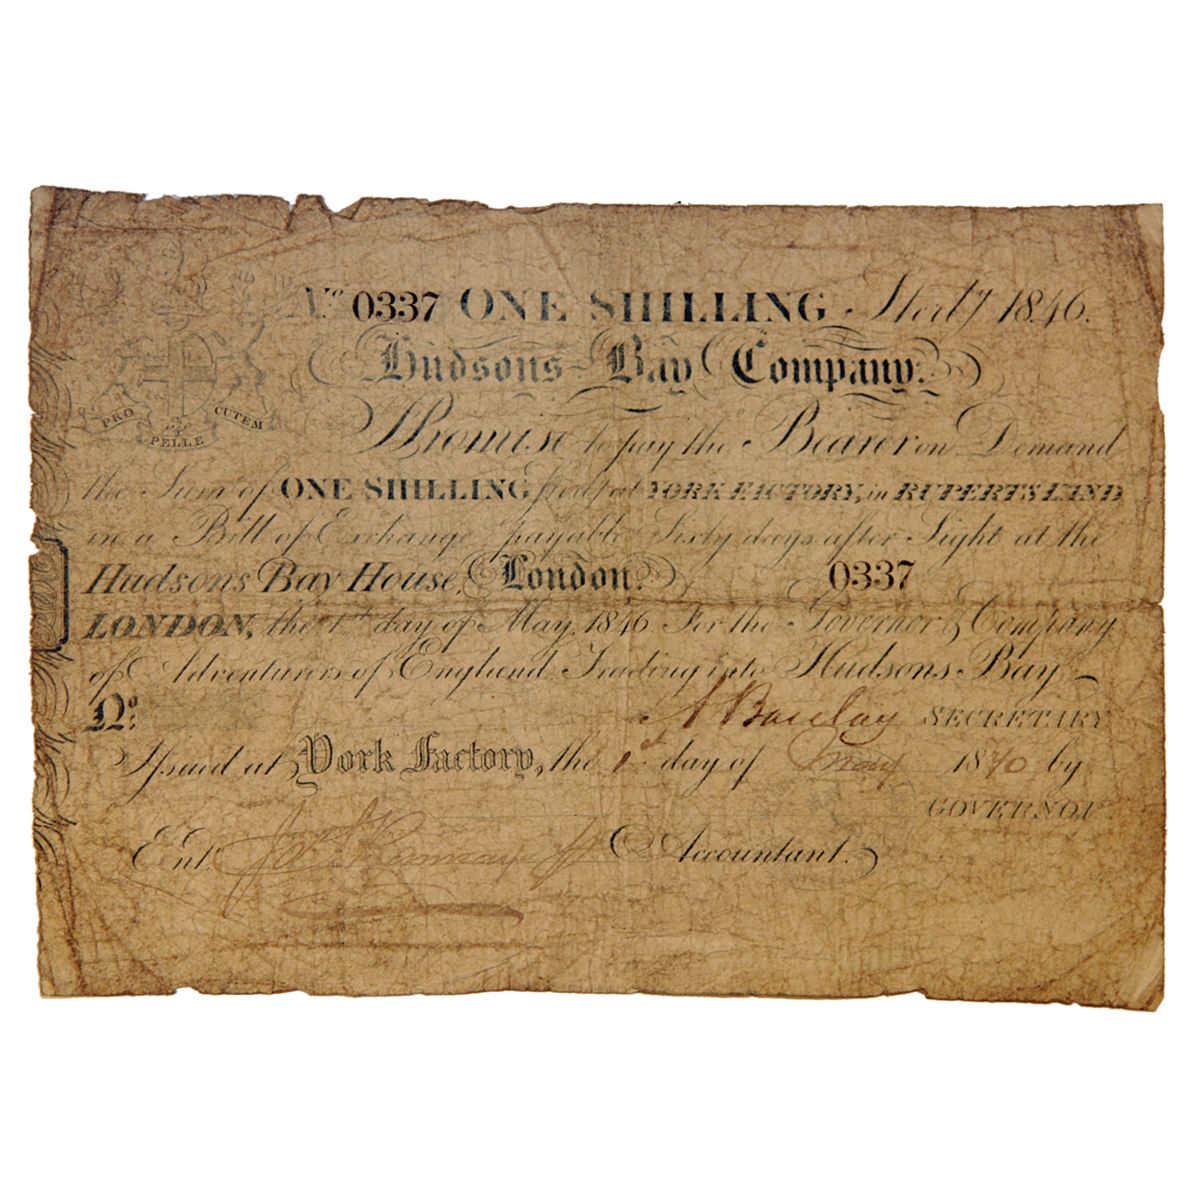 No. 0337 ONE SHILLING Sterl'g 1846.
Hudsons Bay Company.
PRO PELLE CUTEM
I Promise to pay the Bearer on Demand
the Sum of ONE SHILLING Sterl'g at YORK FACTORY, in RUPERTS LAND
in a Bill of Exchange payable Sixty days after Sight at the
Hudsons Bay House, London. 0337
LONDON, the 1st day of May 1846 For the Governor & Company
of Adventurers of England Trading into Hudsons Bay
No.
A Barclay SECRETARY
Issued at York Factory, the 1st day of May 1870 by
GOVERNOR
Entd. Accountant.